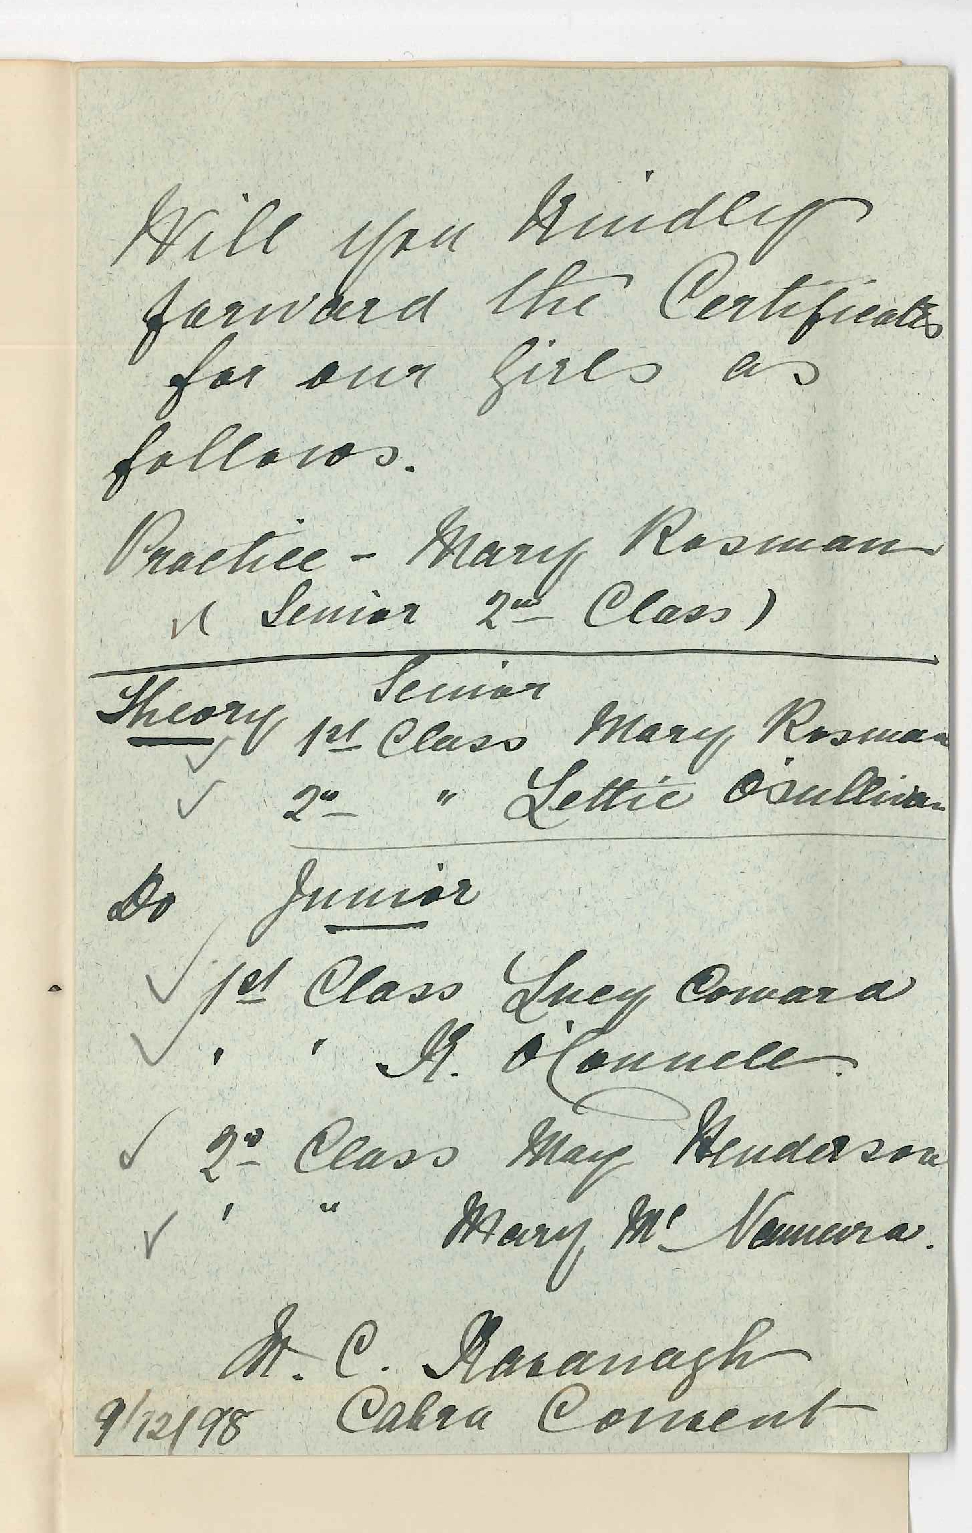 Will you Kindly
forward the Certificates
for our Girls as
follows.
Practice - Mary Rosman
( Senior 2nd Class)
Theory Senior
1st Class Mary Rosman
2nd " Lettie O'Sullivan
Do Junior
1st Class Lucy Coward
' ' K. O'Connell.
2nd Class May Henderson
' " Mary Mc Namara.
M. C. Kavanagh
9/12/98 Cabra Convent